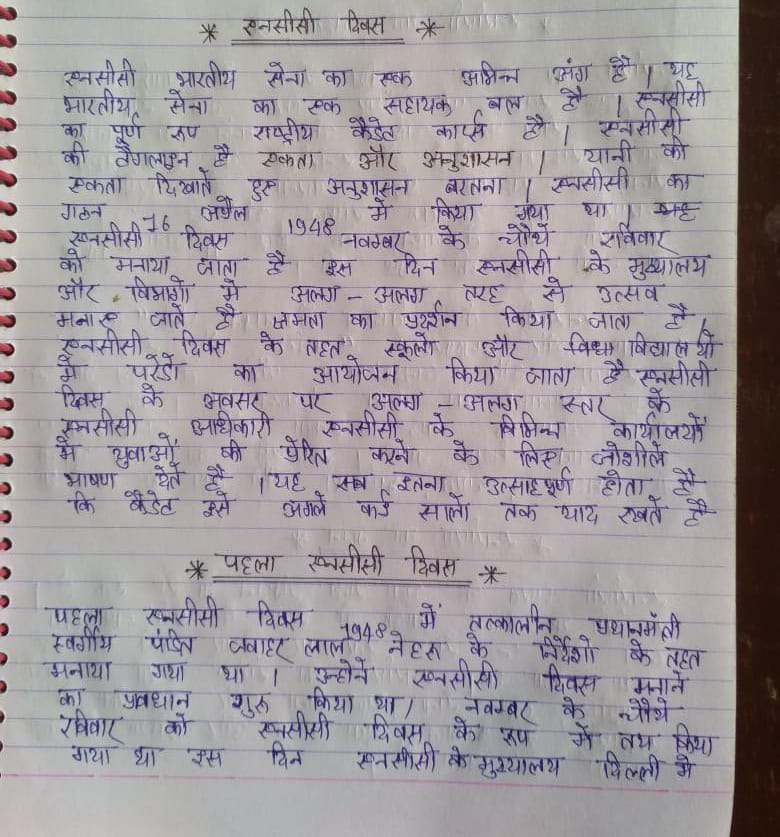 * एनसीसी दिवस *
एनसीसी भारतीय सेना का एक अभिन्न अंग है। यह
भारतीय सेना का एक सहायक बल है। एनसीसी
का पूर्ण रूप राष्ट्रीय कैडेट कार्प्स है। एनसीसी
की टैगलाइन है एकता और अनुशासन। यानी की
एकता दिखाते हुए अनुशासन बरतना। एनसीसी का
गठन 16 अप्रैल 1948 में किया गया था। यह
एनसीसी दिवस नवम्बर के चौथे रविवार
को मनाया जाता है इस दिन एनसीसी के मुख्यालय
और विभागो में अलग - अलग तरह से उत्सव
मनाए जाते है क्षमता का प्रदर्शन किया जाता है।
एनसीसी दिवस के तहत स्कूलो और विधा विद्यालयो
में परेडो का आयोजन किया जाता है एनसीसी
दिवस के अवसर पर अलग - अलग स्तर के
एनसीसी अधिकारी एनसीसी के विभिन्न कार्यालयों
में युवाओं को प्रेरित करने के लिए जोशीले
भाषण देते है। यह सब इतना उत्साहपूर्ण होता है
कि कैडेट इसे अगले कई सालो तक याद रखते है
* पहला एनसीसी दिवस *
पहला एनसीसी दिवस 1948 में तत्कालीन प्रधानमंत्री
स्वर्गीय पंडित जवाहर लाल नेहरू के निर्देशो के तहत
मनाया गया था। उन्होने एनसीसी दिवस मनाने
का प्रवधान शुरू किया था। नवम्बर के चौथे
रविवार को एनसीसी दिवस के रूप में तय किया
गया था इस दिन एनसीसी के मुख्यालय दिल्ली में